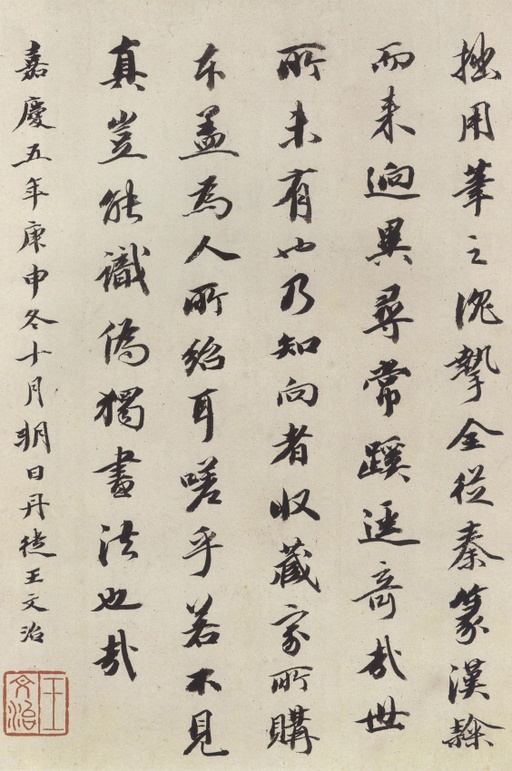 拙用筆之沈摯全從秦篆漢隸
而來迥異尋常蹊逕奇哉世
所未有也乃知向者收藏家所購
本盖為人所紿耳嗟乎若不見
真豈能識偽獨畫法也哉
嘉慶五年庚申冬十月朔日丹徒王文治
王文治